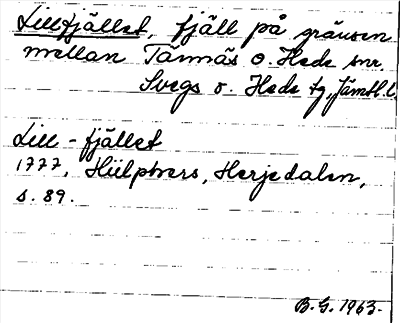 Lillfjället, fjäll på gränsen
mellan Tännäs o. Hede snr.
Svegs o. Hede tg, Jämtl. l.
Lill-fjället
1777, Hülphers, Herjedalen,
s. 89.
B. G. 1963.